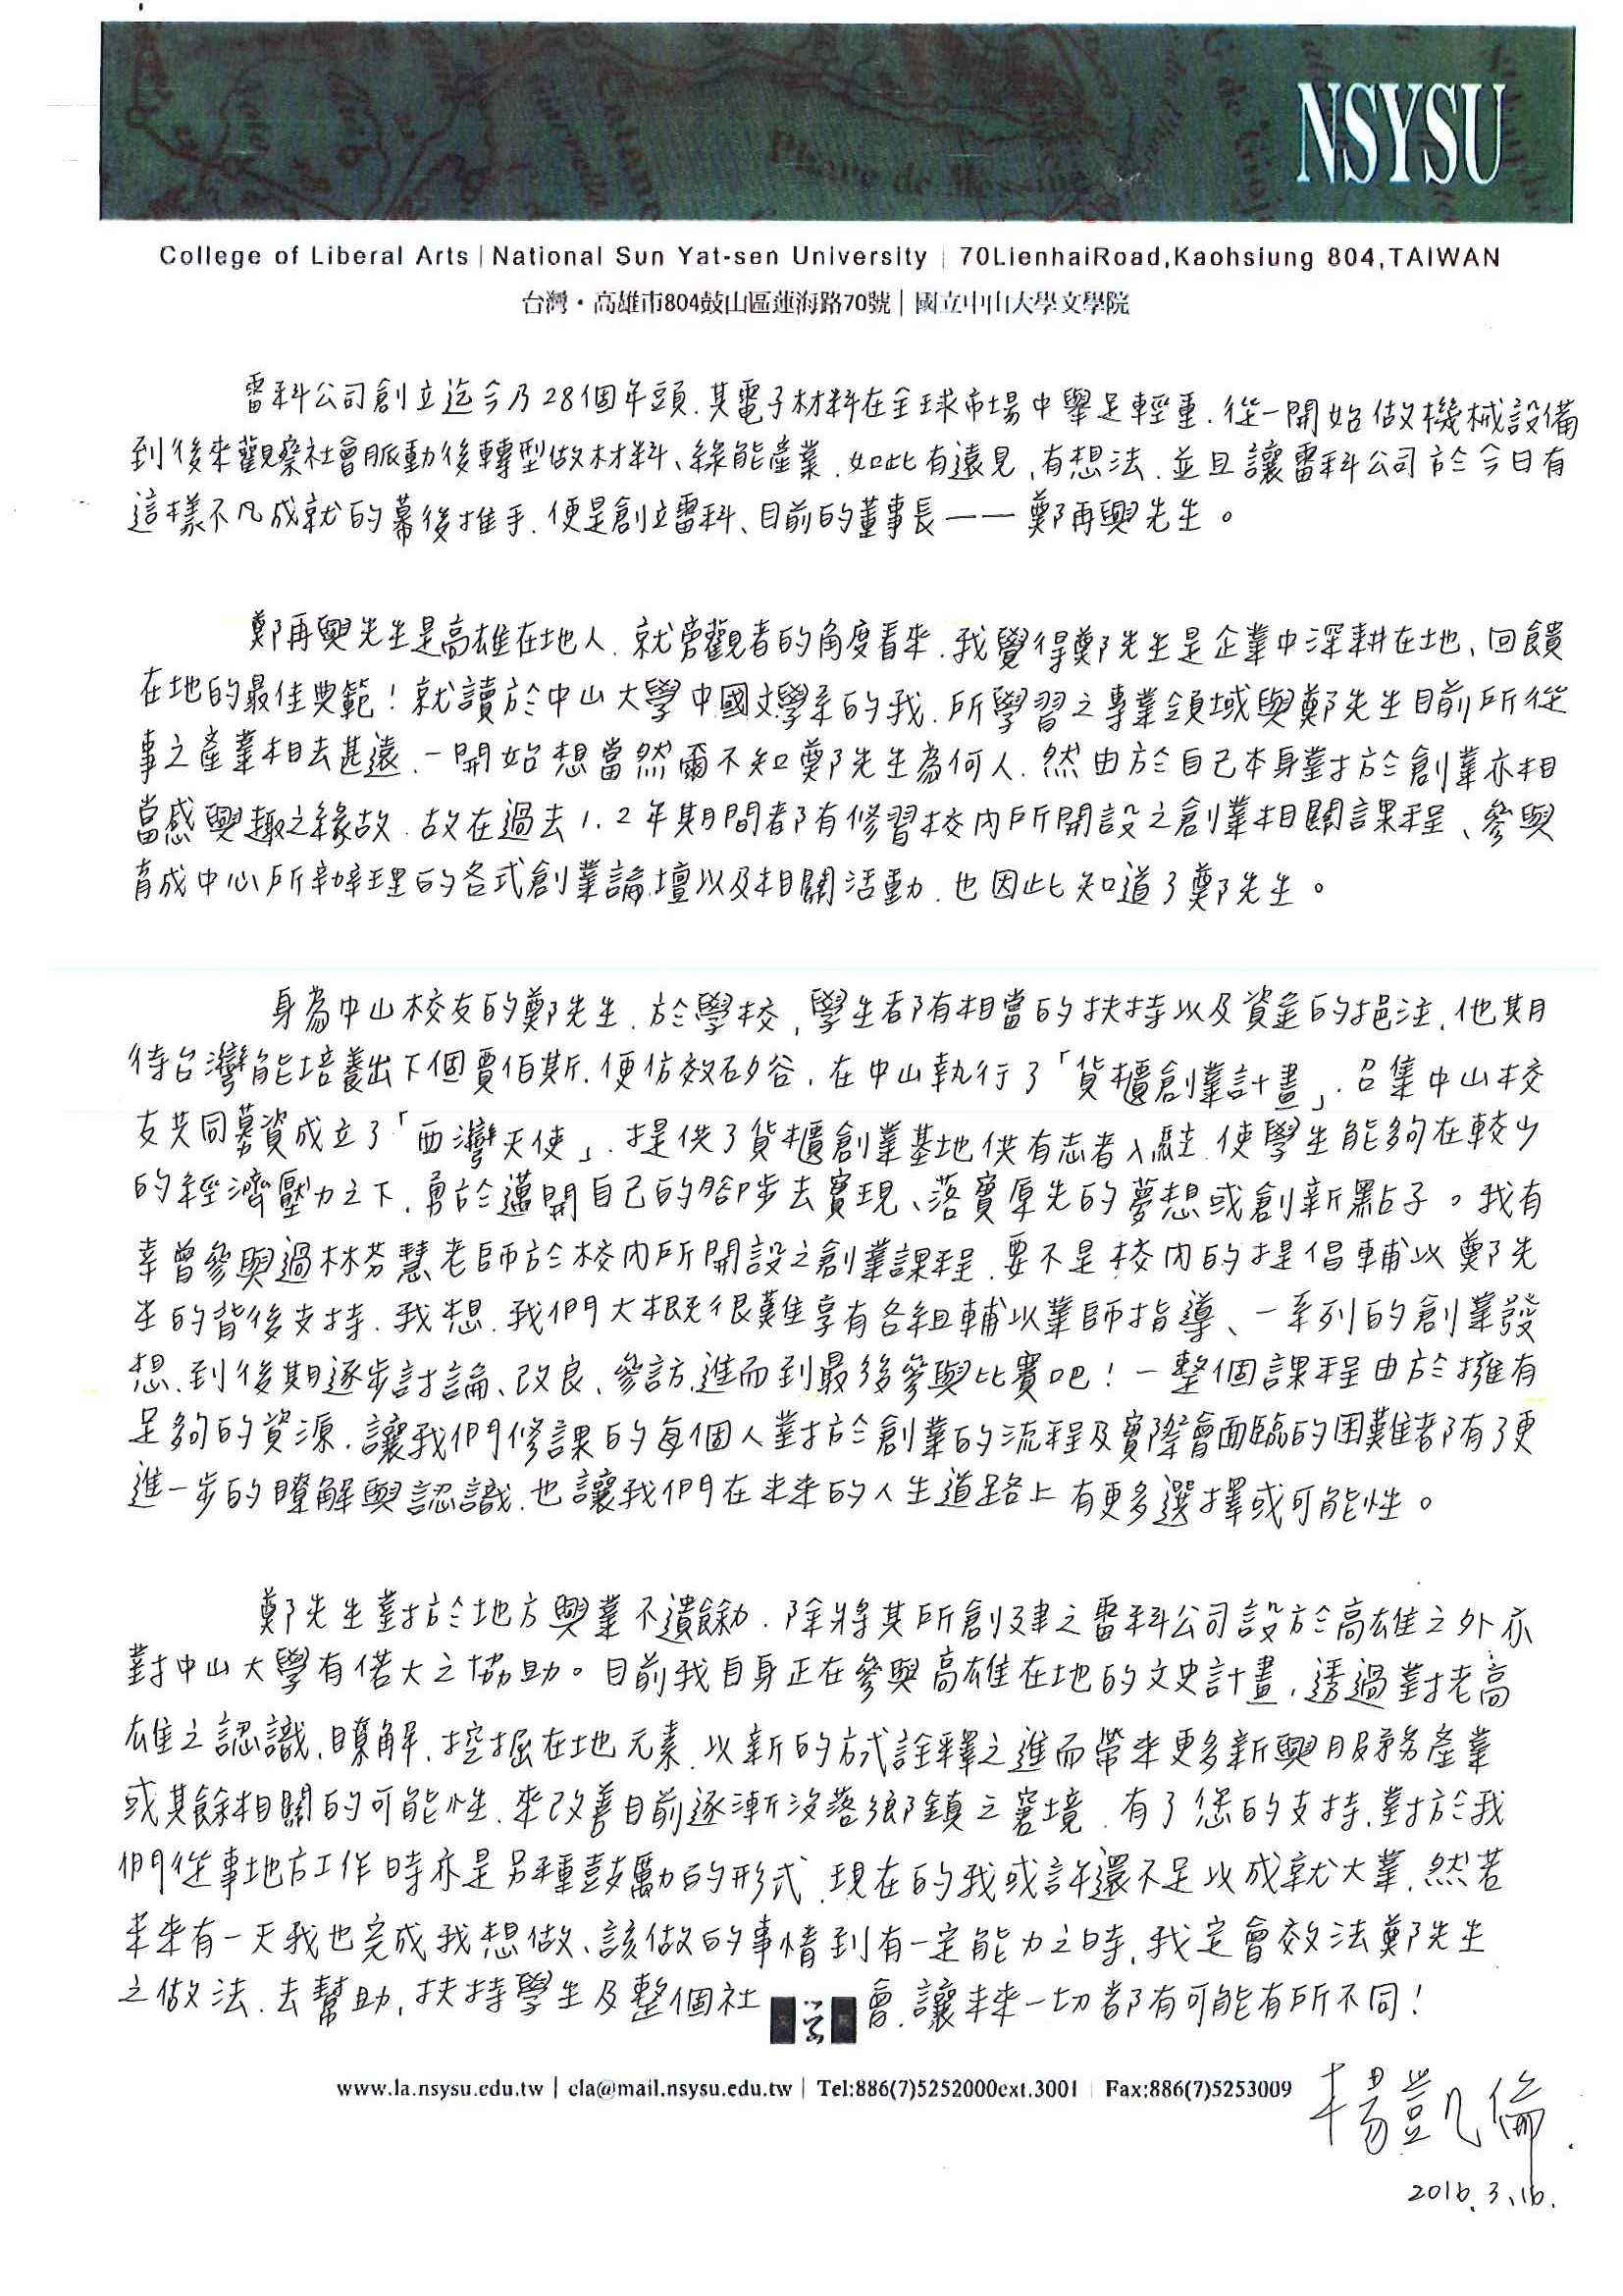 NSYSU
College of Liberal Arts | National Sun Yat-sen University | 70LienhaiRoad,Kaohsiung 804,TAIWAN
台灣・高雄市804鼓山區蓮海路70號 | 國立中山大學文學院
雷科公司創立迄今乃28個年頭,其電子材料在全球市場中舉足輕重,從一開始做機械設備
到後來觀察社會脈動後轉型做材料、綠能產業,如此有遠見,有想法,並且讓雷科公司於今日有
這樣不凡成就的幕後推手,便是創立雷科、目前的董事長——鄭再興先生。
鄭再興先生是高雄在地人,就旁觀者的角度看來,我覺得鄭先生是企業中深耕在地、回饋
在地的最佳典範!就讀於中山大學中國文學系的我,所學習之專業領域與鄭先生目前所從
事之產業相去甚遠,一開始想當然爾不知鄭先生為何人,然由於自己本身對於創業亦相
當感興趣之緣故,故在過去1、2年期間都有修習校內所開設之創業相關課程、參與
育成中心所辦理的各式創業論壇以及相關活動,也因此知道了鄭先生。
身為中山校友的鄭先生,於學校,學生都有相當的扶持以及資金的挹注,他期
待台灣能培養出下個賈伯斯,便仿效矽谷,在中山執行了「貨櫃創業計畫」,召集中山校
友共同募資成立了「西灣天使」,提供了貨櫃創業基地供有志者入駐,使學生能夠在較少
的經濟壓力之下,勇於邁開自己的腳步去實現、落實原先的夢想或創新點子。我有
幸曾參與過林芬慧老師於校內所開設之創業課程,要不是校內的提倡輔以鄭先
生的背後支持,我想,我們大概很難享有各組輔以業師指導、一系列的創業發
想,到後期逐步討論、改良、參訪,進而到最後參與比賽吧!一整個課程由於擁有
足夠的資源,讓我們修課的每個人對於創業的流程及實際會面臨的困難都有了更
進一步的瞭解與認識,也讓我們在未來的人生道路上有更多選擇或可能性。
鄭先生對於地方興業不遺餘力,除將其所創建之雷科公司設於高雄之外亦
對中山大學有偌大之協助。目前我自身正在參與高雄在地的文史計畫,透過對老高
雄之認識,瞭解,挖掘在地元素,以新的方式詮釋之進而帶來更多新興服務產業
或其餘相關的可能性,來改善目前逐漸沒落鄉鎮之窘境,有了您的支持,對於我
們從事地方工作時亦是另種鼓勵的形式,現在的我或許還不足以成就大業,然若
未來有一天我也完成我想做、該做的事情到有一定能力之時,我定會效法鄭先生
之做法,去幫助,扶持學生及整個社會,讓未來一切都有可能有所不同!
www.la.nsysu.edu.tw | cla@mail.nsysu.edu.tw | Tel:886(7)5252000ext.3001 | Fax:886(7)5253009
楊凱倫
2016.3.16.